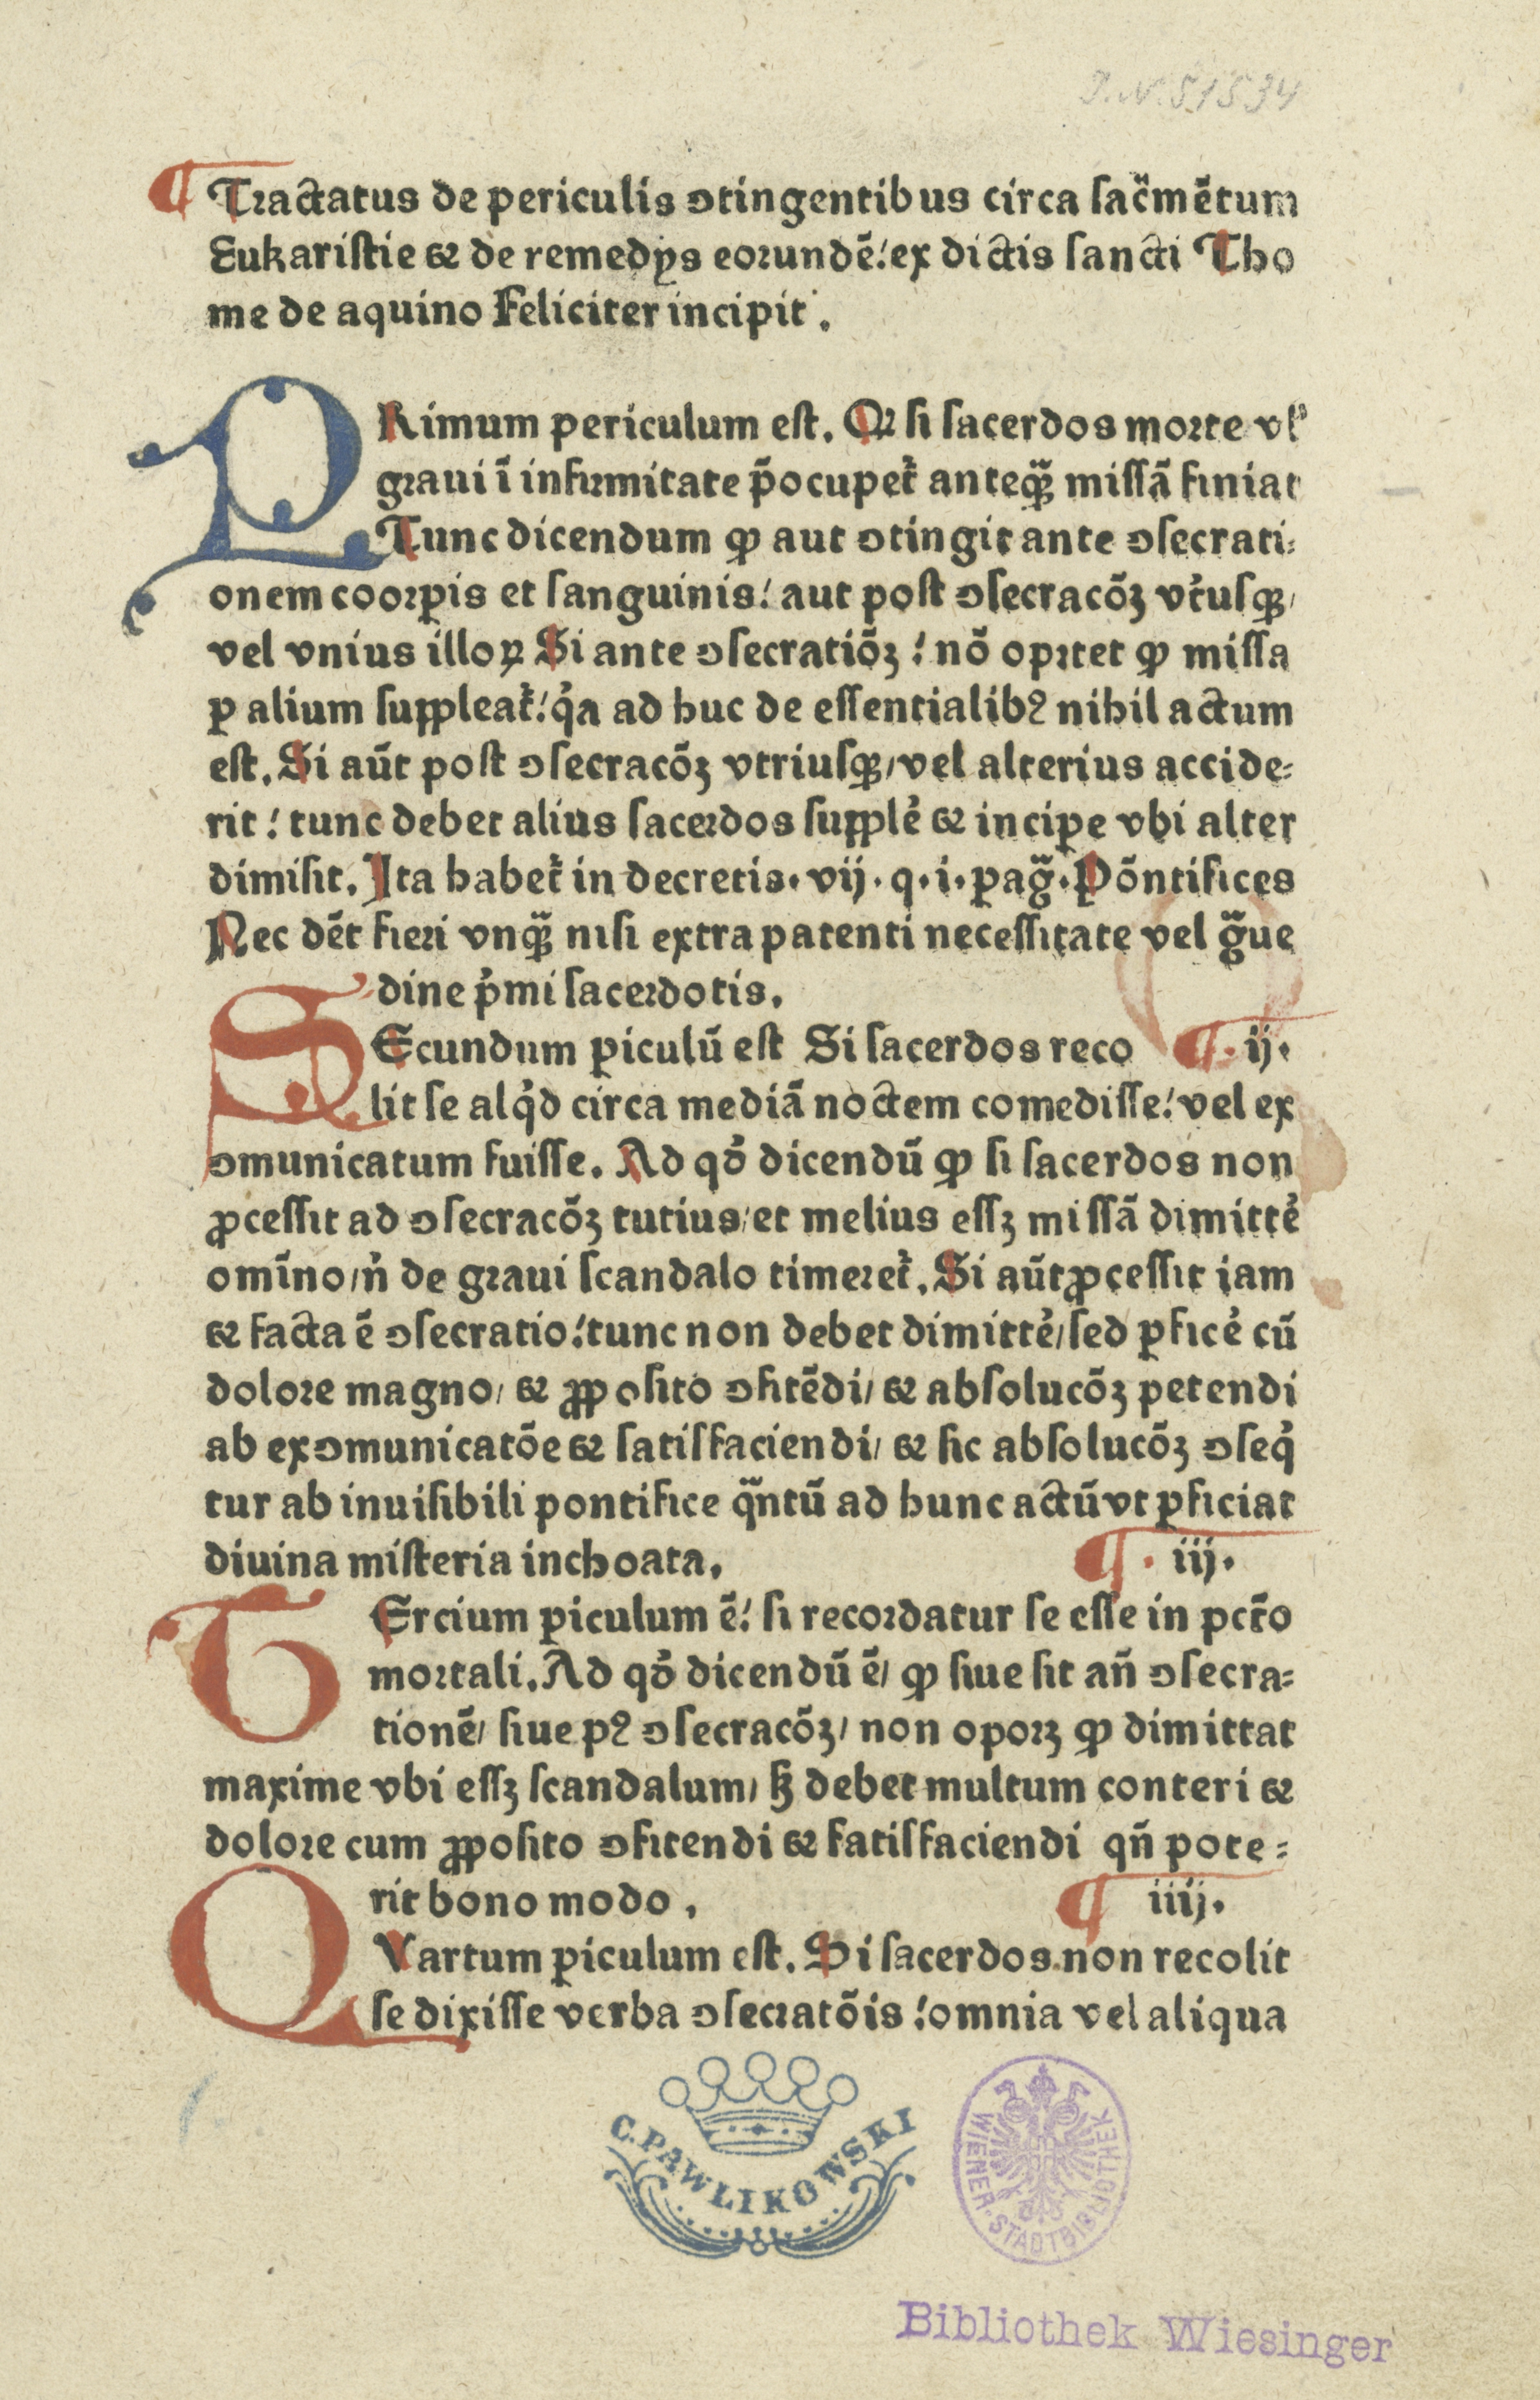 J.N. 51534
¶ Tractatus de periculis ↄtingentibus circa sac̄mētum
Eukaristie & de remedijs eorundē: ex dictis sancti Tho
me de aquino Feliciter incipit.
PRimum periculum est. Qꝛ si sacerdos morte vlˀ
graui ī infirmitate p̄ocupet᷑ anteqꝫ̄ missā finiat
Tunc dicendum ꝙ aut ↄtingit ante ↄsecrati⸗
onem coorꝑis et sanguinis: aut post ↄsecracōꝫ vt᷑usqꝫ/
vel vnius illoꝝ Si ante ↄsecratiōꝫ: nō oprtet ꝙ missa
ꝑ alium suppleat᷑: qͥa ad huc de essentialibꝰ nihil actum
est. Si aūt post ↄsecracōꝫ vtriusqꝫ/vel alterius accide⸗
rit: tunc debet alius sacerdos supplē & inciꝑe vbi alter
dimisit. Ita habet᷑ in decretis. vij. q. i. pag̃. Pōntifices
Nec dēt fieri vnqꝫ̄ nisi extra patenti necessitate vel g̃ue
dine pͥmi sacerdotis.
SEcundum ꝑiculū est Si sacerdos reco ¶. ij.
lit se alqͥd circa mediā noctem comedisse: vel ex
ↄmunicatum fuisse. Ad qđ dicendū ꝙ si sacerdos non
ꝓcessit ad ↄsecracōꝫ tutius/et melius essꝫ missā dimittē
omīno/nͥ de graui scandalo timeret᷑. Si aūt ꝓcessit iam
& facta ē ↄsecratio: tunc non debet dimittē/sed ꝑficē cū
dolore magno/ & ꝓposito ↄfitēdi/ & absolucōꝫ petendi
ab exↄmunicatōe & satisfaciendi/ & sic absolucōꝫ ↄseqͥ
tur ab inuisibili pontifice qͣntū ad hunc actū vt ꝑficiat
diuina misteria inchoata. ¶. iij.
TErcium ꝑiculum ē: si recordatur se esse in pct̄o
mortali. Ad qđ dicendū ē/ ꝙ siue sit an̄ ↄsecra⸗
tionē/ siue pꝰ ↄsecracōꝫ/ non oporꝫ ꝙ dimittat
maxime vbi essꝫ scandalum/ sꝫ debet multum conteri &
dolore cum ꝓposito ↄfitendi & fatisfaciendi qn̄ pote⸗
rit bono modo. ¶ iiij.
QVartum ꝑiculum est. Si sacerdos non recolit
se dixisse verba ↄsecratōis: omnia vel aliqua
C. PAWLIKOWSKI
WIENER STADTBIBLIOTHEK
Bibliothek Wiesinger